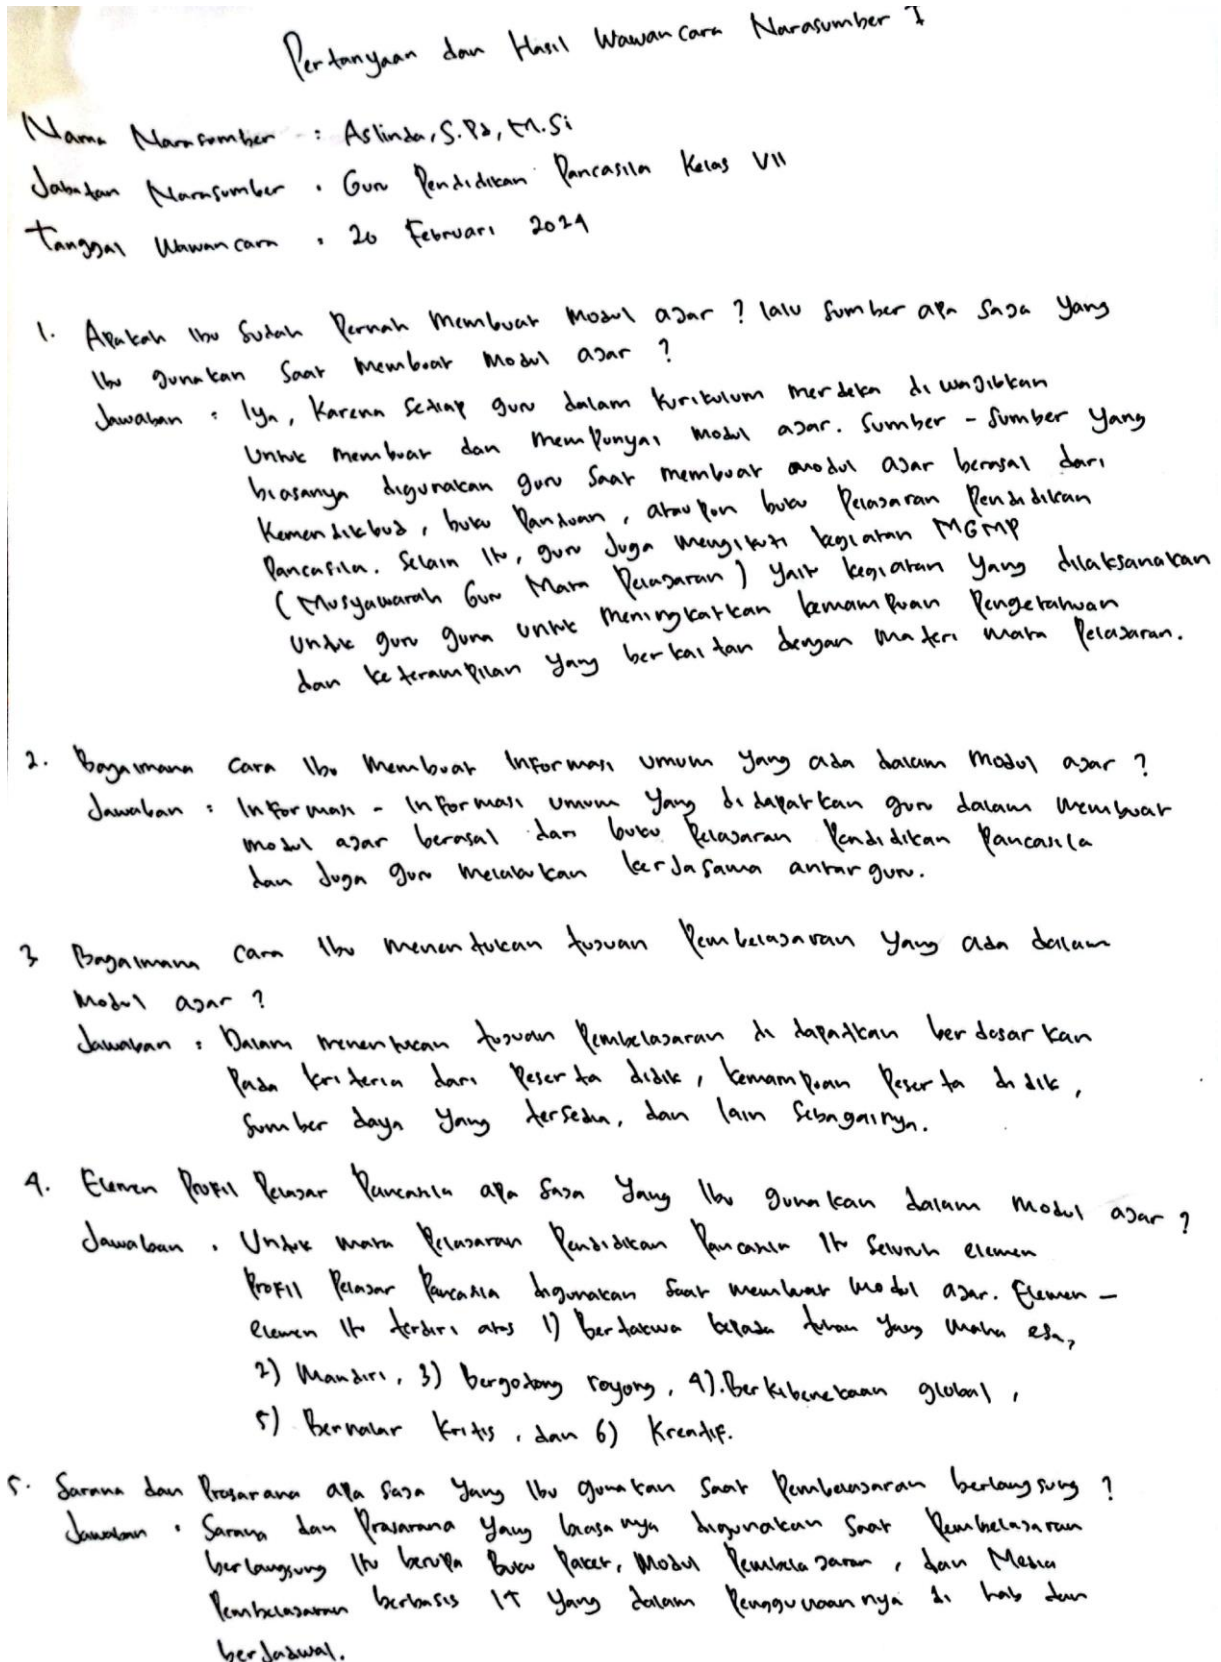 Pertanyaan dan Hasil Wawancara Narasumber I
Nama Narasumber : Aslinda, S.Pd, M.Si
Jabatan Narasumber : Guru Pendidikan Pancasila Kelas VII
Tanggal Wawancara : 20 Februari 2024
1. Apakah Ibu Sudah Pernah Membuat Modul ajar ? lalu Sumber apa saja yang
Ibu gunakan Saat Membuat Modul ajar ?
Jawaban : Iya, Karena Setiap guru dalam Kurikulum merdeka di wajibkan
Untuk membuat dan mempunyai modul ajar. Sumber - Sumber yang
biasanya digunakan guru Saat membuat modul ajar berasal dari
Kemendikbud, buku Panduan, ataupun buku Pelajaran Pendidikan
Pancasila. Selain Itu, guru Juga mengikuti kegiatan MGMP
(Musyawarah Guru Mata Pelajaran) yaitu kegiatan yang dilaksanakan
Untuk guru guna untuk meningkatkan kemampuan Pengetahuan
dan keterampilan yang berkaitan dengan materi mata Pelajaran.
2. Bagaimana cara Ibu Membuat Informasi umum yang ada dalam Modul ajar ?
Jawaban : Informasi - Informasi umum yang di dapatkan guru dalam membuat
modul ajar berasal dari buku Pelajaran Pendidikan Pancasila
dan Juga guru melakukan kerJasama antar guru.
3 Bagaimana cara Ibu menentukan tujuan Pembelajaran yang ada dalam
Modul ajar ?
Jawaban : Dalam menentukan tujuan Pembelajaran di dapatkan berdasarkan
Pada kriteria dari Peserta didik, kemampuan Peserta didik,
Sumber daya yang tersedia, dan lain Sebagainya.
4. Elemen Profil Pelajar Pancasila apa saja yang Ibu gunakan dalam modul ajar ?
Jawaban : Untuk mata Pelajaran Pendidikan Pancasila Itu Seluruh elemen
Profil Pelajar Pancasila digunakan Saat membuat modul ajar. Elemen -
elemen Itu terdiri atas 1) Bertakwa kepada tuhan yang maha esa,
2) Mandiri, 3) bergotong royong, 4). Berkibenekaan global,
5) Bernalar Kritis, dan 6) Kreatif.
5. Sarana dan Prasarana apa saja yang Ibu gunakan Saat Pembelajaran berlangsung ?
Jawaban : Sarana dan Prasarana yang biasanya digunakan Saat Pembelajaran
berlangsung Itu berupa Buku Paket, Modul Pembelajaran, dan Media
Pembelajaran berbasis IT yang dalam Penggunaannya di dan
berJadwal.